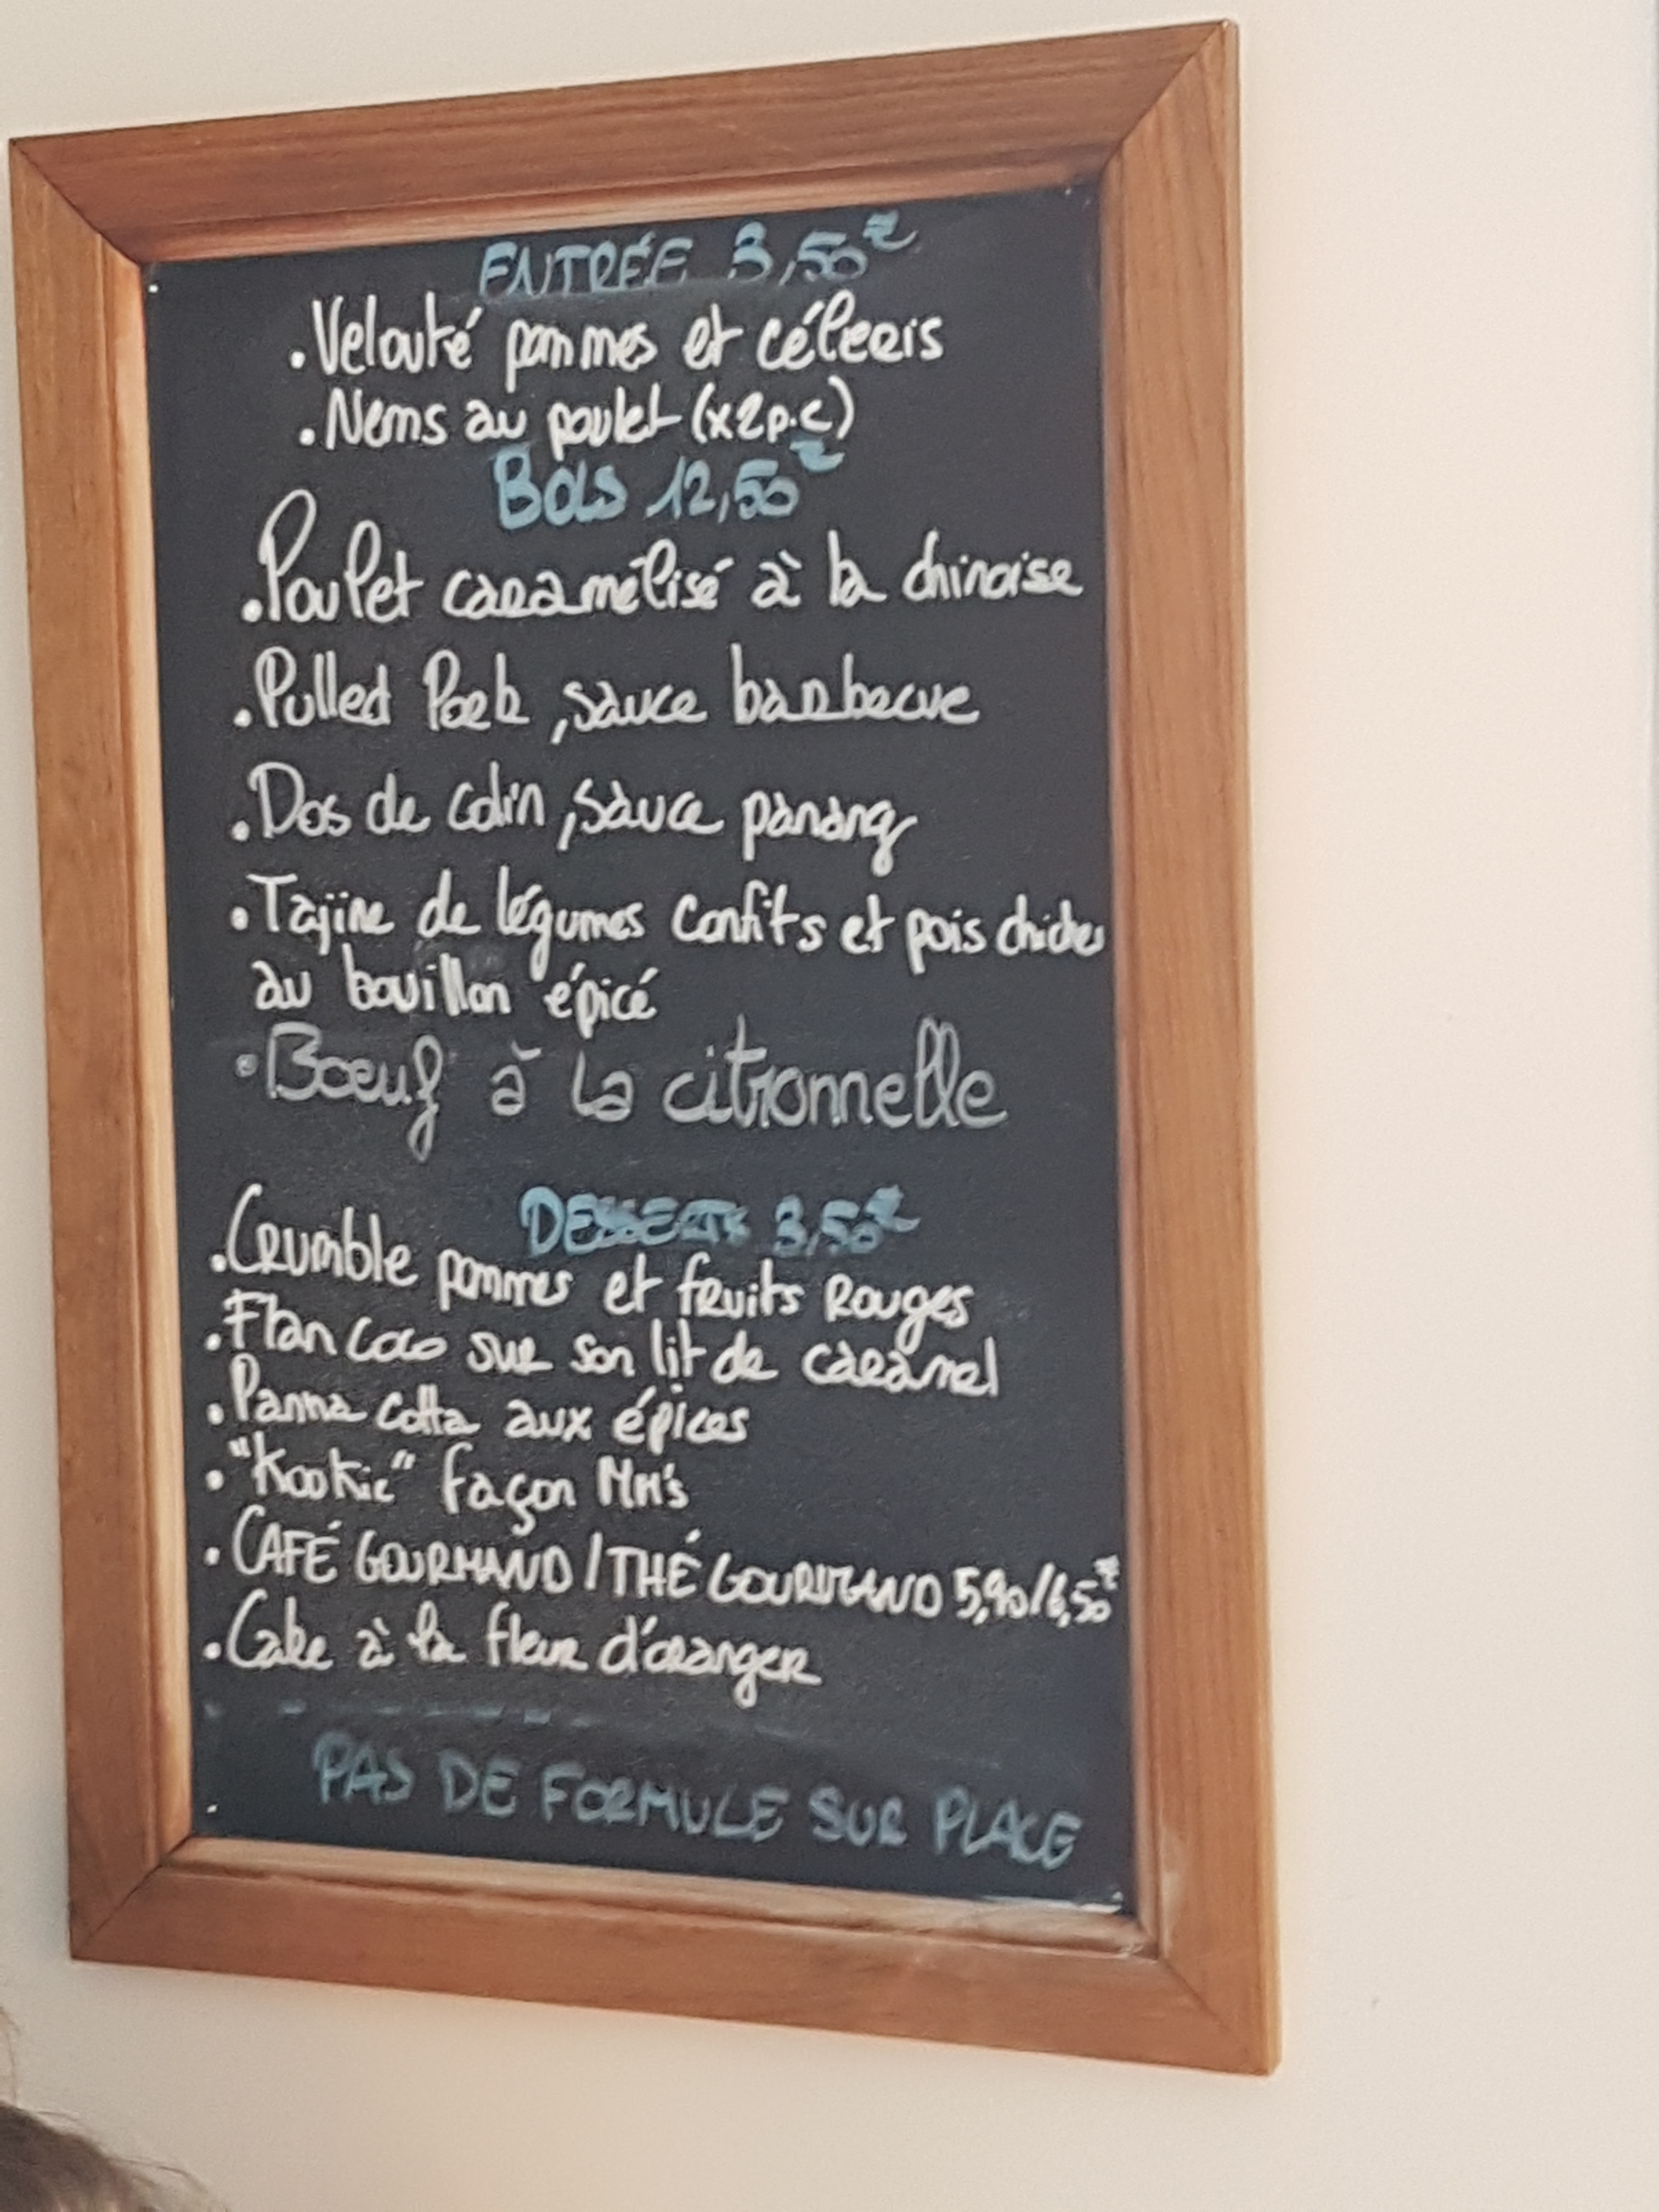 ENTRÉE 3,50€
. Velouté pommes et céleris
. Nems au poulet (x2p.c)
BOLS 12,50€
. Poulet caramélisé à la chinoise
. Pulled Pork, sauce barbecue
. Dos de colin, sauce panang
. Tajine de légumes confits et pois chiches
au bouillon épicé
. Boeuf à la citronnelle
DESSERTS 3,50€
. Crumble pommes et fruits Rouges
. Flan coco sur son lit de caramel
. Panna cotta aux épices
. "Kookie" façon MM's
. CAFÉ GOURMAND / THÉ GOURMAND 5,90/6,50€
. Cake à la fleur d'oranger
PAS DE FORMULE SUR PLACE